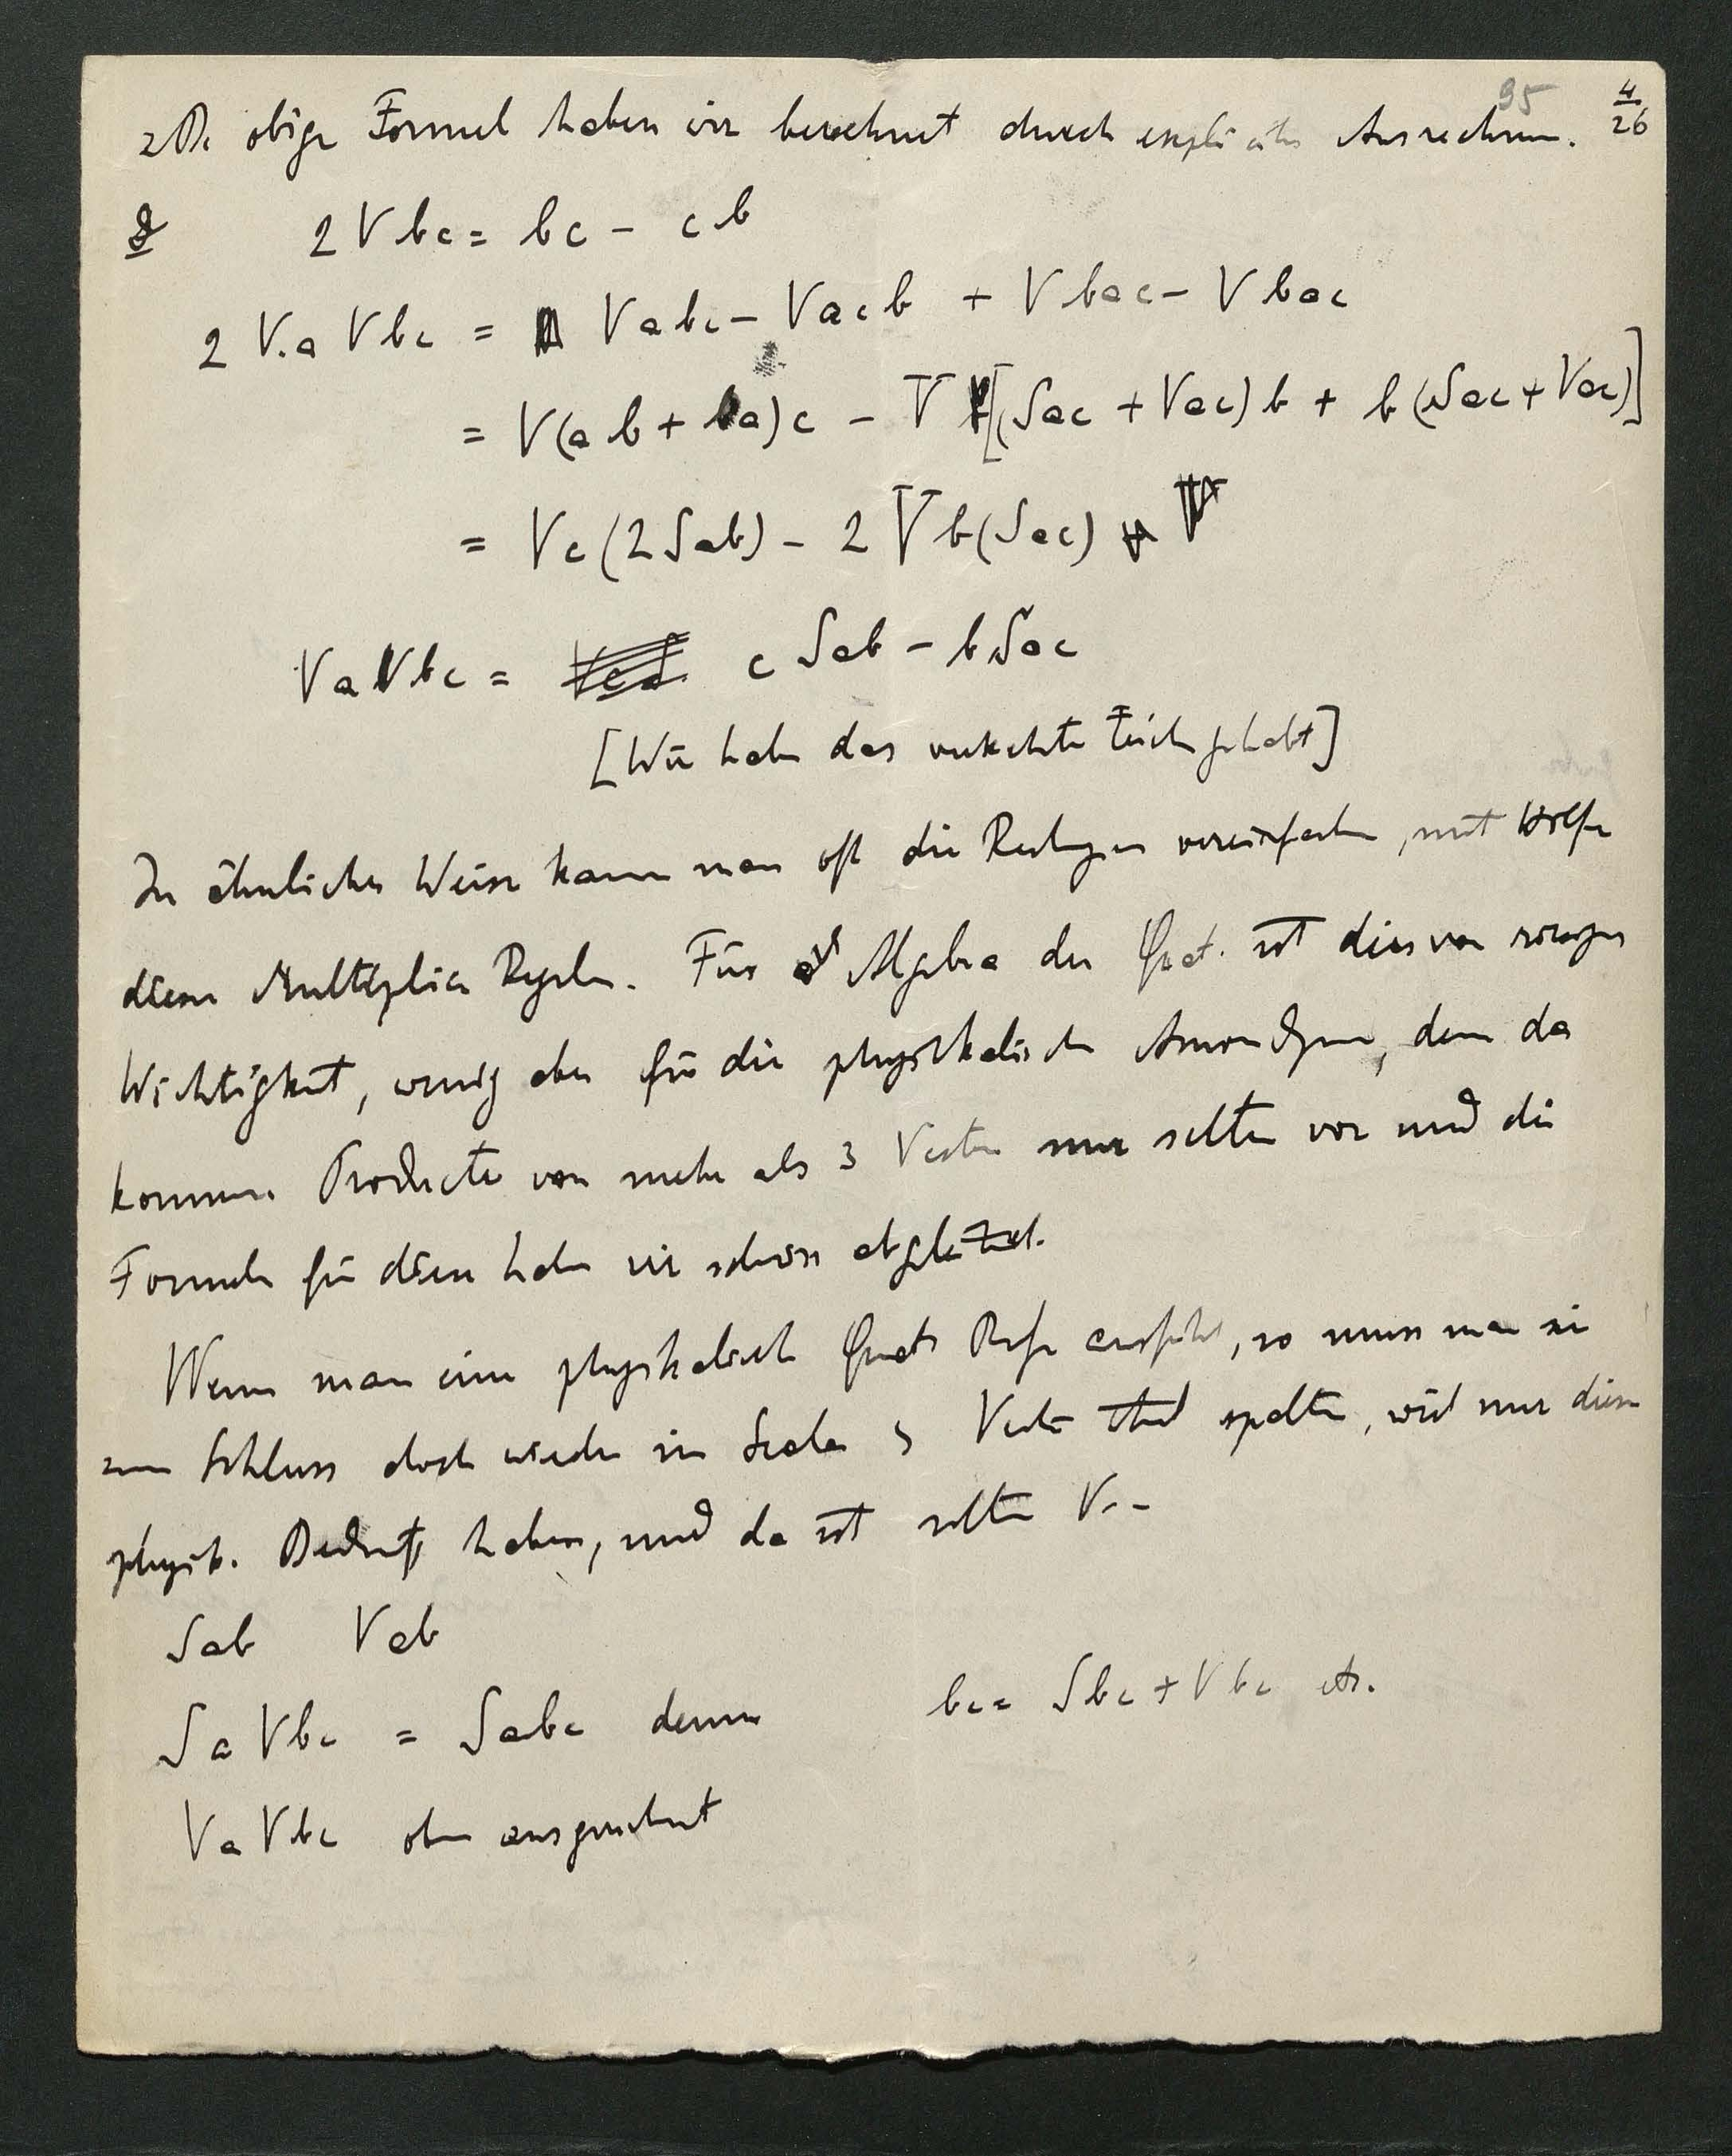 95 4/26
Die obige Formel haben wir berechnet durch explicites Ausrechnen.
2Vbc = bc - cb
2 V.a Vbc = Vabc - Vacb + Vbac - Vbac
= V(ab + ba)c - V[(Sac + Vac)b + b(Sac + Vac)]
= Vc(2Sab) - 2Vb(Sac)
VaVbc = c Sab - bSac
[Wir haben das verkehrte Zeichen gehabt]
In ähnlicher Weise kann man oft die Rechnungen vereinfachen, mit Hülfe
dieser Multiplic Regeln. Für Algebra der Quat. ist dies von
Wichtigkeit, wenig aber für die physikalischen Anwendungen, denn da
kommen Producte von mehr als 3 Vectoren nur selten vor und die
Formeln für diese haben wir schon abgeleitet.
Wenn man eine physikalisch Quat ausführt, so muss man sie
zum Schluss doch wieder in Scalar Vector Theil spalten, weil nur diese
physik. Bedeutg haben, und da ist selten V--
Sab Vab
SaVbc = Sabc denn bc = Sbc + Vbc etc.
VaVbc oben ausgerechnet